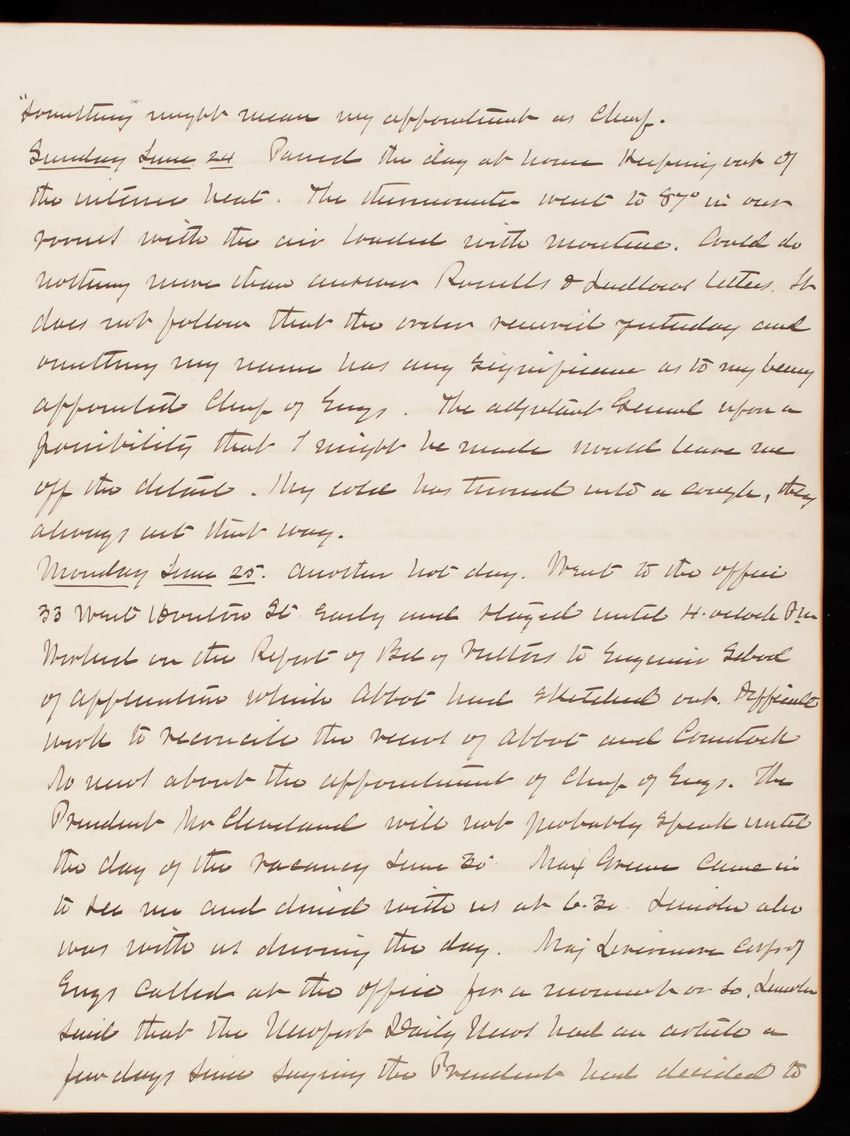 "Something" might mean my appointment as Chief.
Sunday June 24 Passed the day at home keeping out of
the intense heat. The thermometer went to 87° in our
rooms with the air loaded with moisture. Could do
nothing more than answer & Ludlows letters. It
does not follow that the order received yesterday and
omitting my name has any significance as to my being
appointed Chief of Engs. The adjutant General upon a
possibility that I might be made would leave me
off the detail. My cold has turned into a cough, they
always act that way.
Monday June 25. Another hot day. Went to the office
33 West Houston St early and stayed until 4.oclock Pm
Worked on the Report of Bd of Visitors to Engineer School
of application which Abbot had sketched out. Difficult
work to reconcile the views of Abbot and Comstock
No news about the appointment of Chief of Engs. The
President Mr Cleveland will not probably speak until
the day of the vacancy June 30 Greene came in
to see me and dined with us at 6.30. Lincoln also
was with us during the day. Maj Livermore Corps of
Engs called at the office for a moment or so. Lincoln
said that the Newport Daily News had an article a
few days since saying the President had decided to